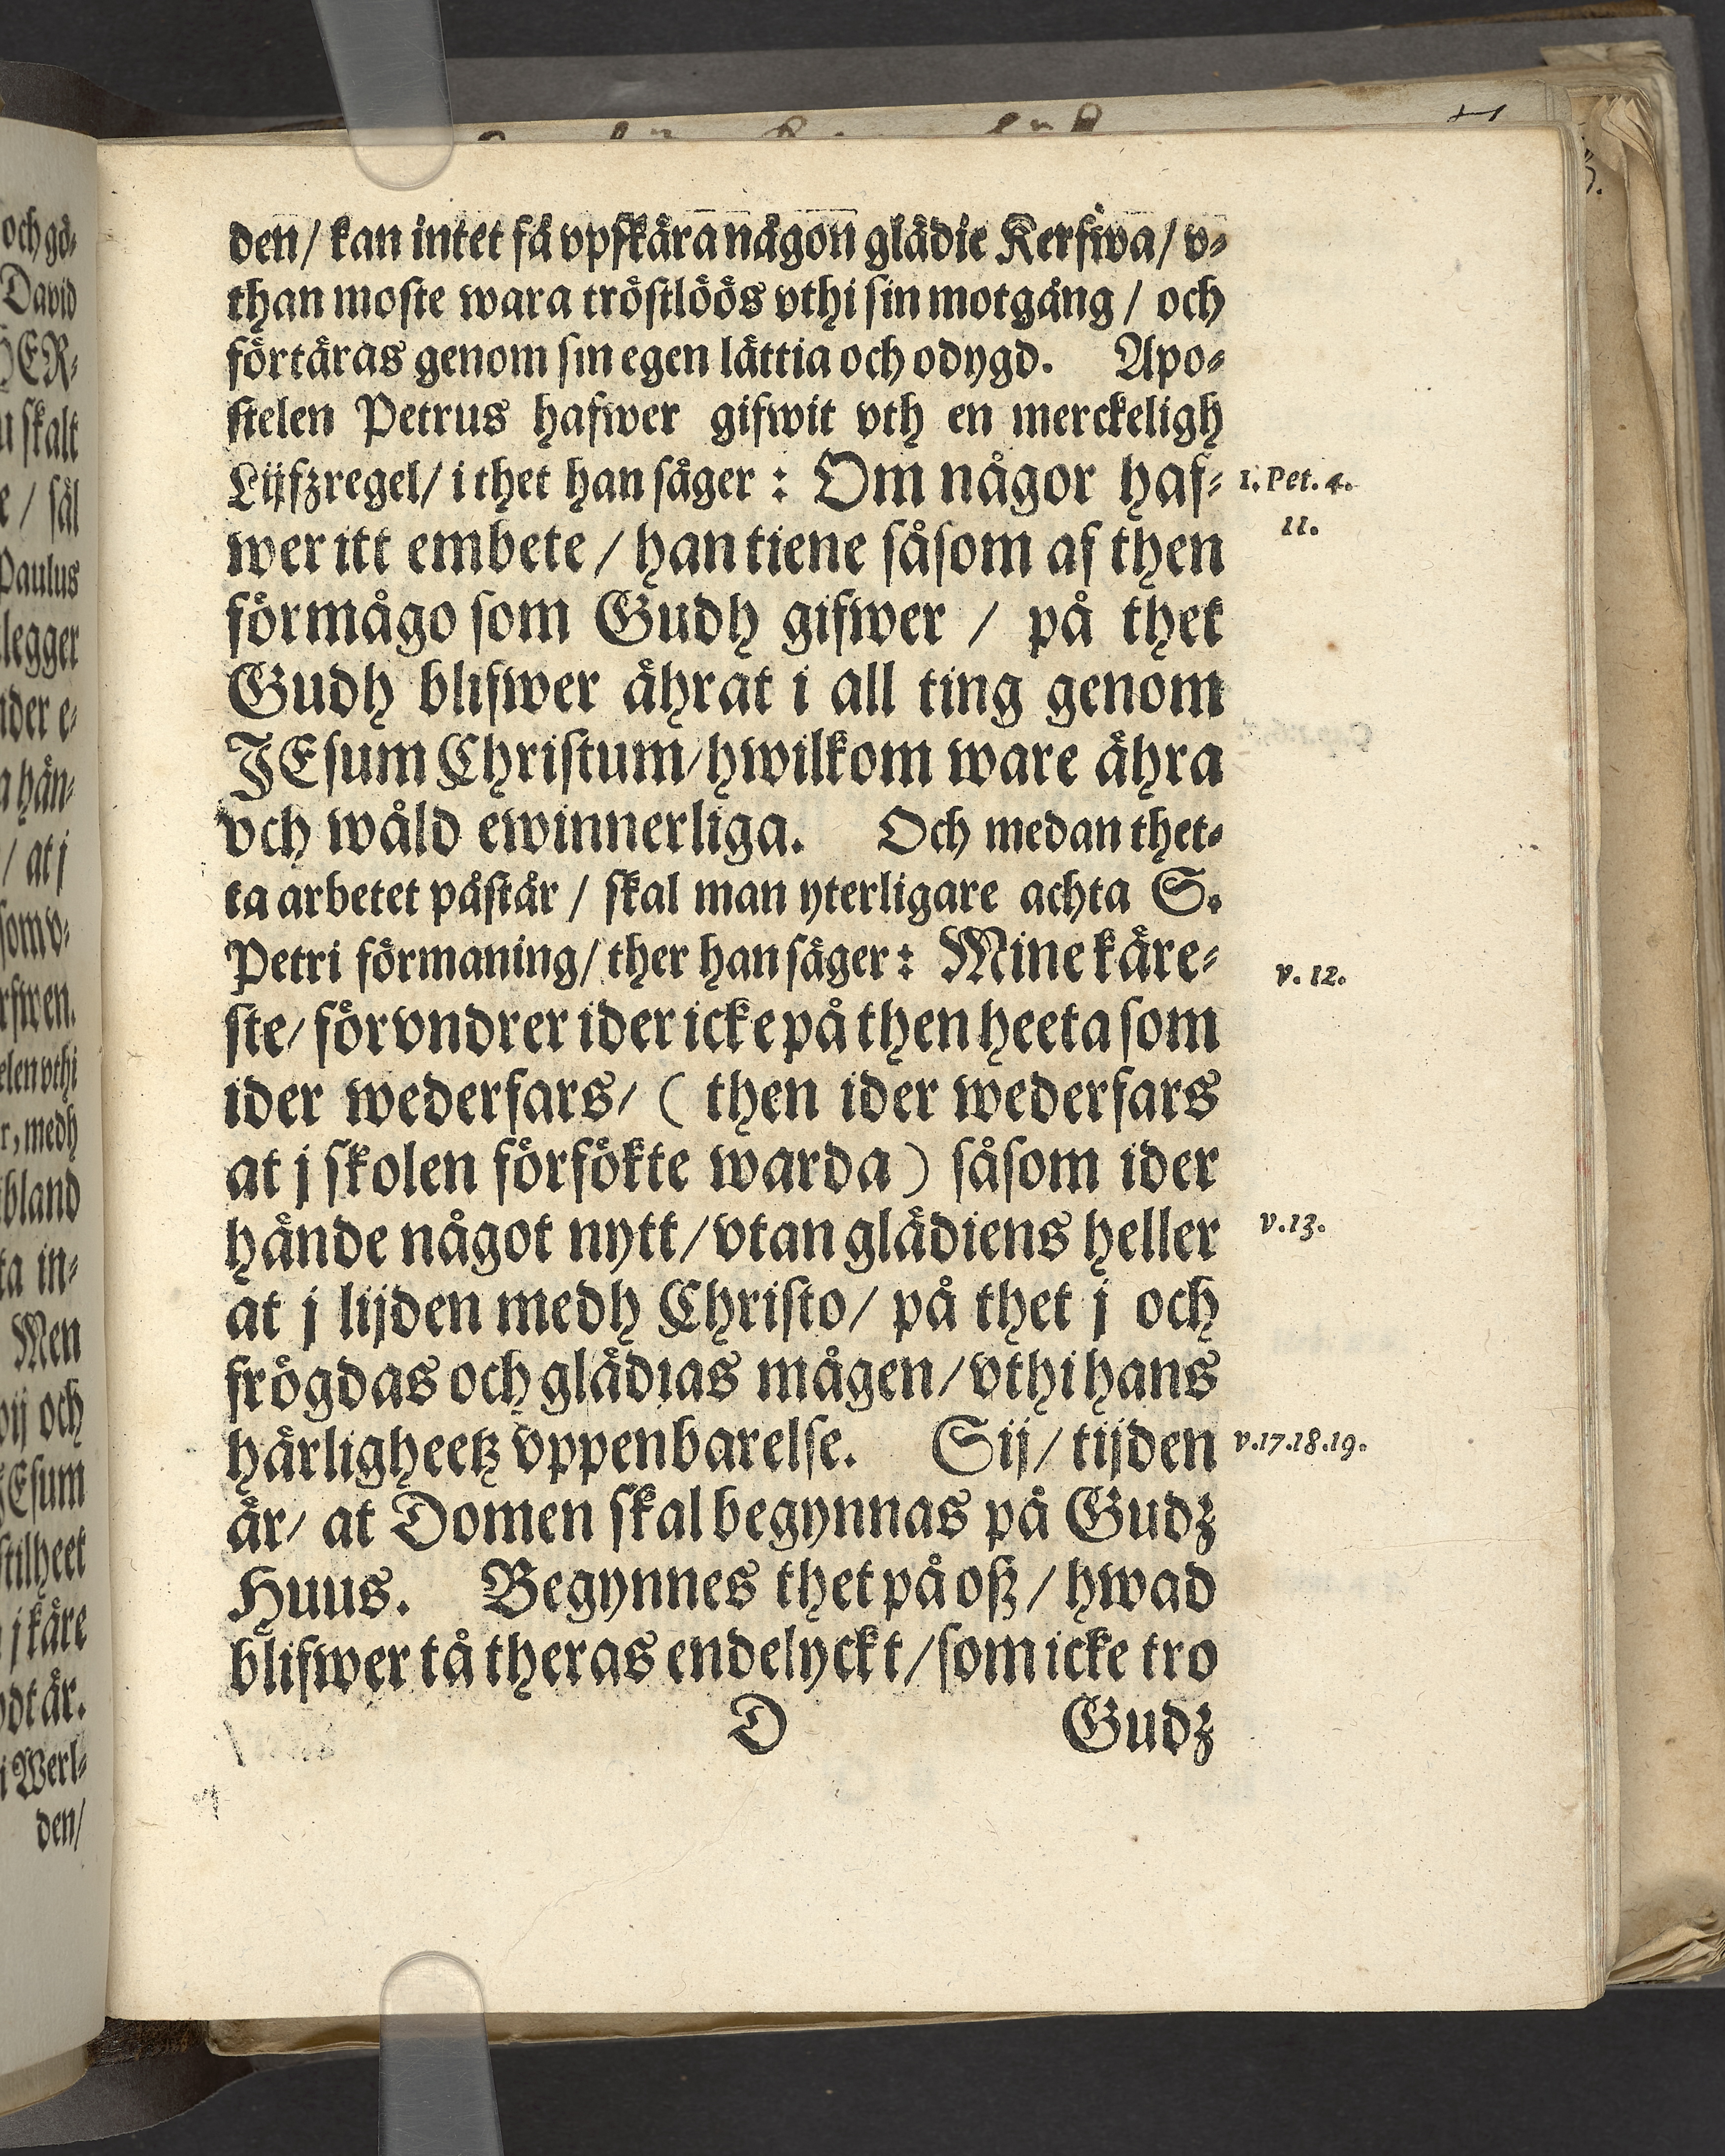 och gö-
David
HER-
u skalt
e / säl
Paulus
legger
nder e-
a hän-
/ at j
som v-
rfwen.
elen vthi
r, medh
ibland
ta in-
Men
wij och
JEsum
stilheet
j käre
odt är.
i Werl-
den/
den/ kan intet få vpskära någon glädie Kerfwa/ v-
than moste wara tröstlöös vthi sin motgång / och
förtäras genom sin egen lättia och odygd. Apo-
stelen Petrus hafwer gifwit vth en merckeligh
Lijfzregel/ i thet han säger : Om någor haf-
1. Pet. 4.
11.
wer itt embete / han tiene såsom af then
förmågo som Gudh gifwer / på thet
Gudh blifwer ährat i all ting genom
JEsum Christum/ hwilkom ware ähra
och wåld ewinnerliga. Och medan thet-
ta arbetet påstår / skal man yterligare achta S.
Petri förmaning/ ther han säger : Mine käre-
v. 12.
ste/ förvndrer ider icke på then heeta som
ider wederfars/ ( then ider wederfars
at j skolen försökte warda ) såsom ider
hände något nytt / vtan glädiens heller
v. 13.
at j lijden medh Christo / på thet j och
frögdas och glädias mågen / vthi hans
härligheetz vppenbarelse. Sij / tijden
v. 17. 18. 19.
är/ at Domen skal begynnas på Gudz
Huus. Begynnes thet på oß / hwad
blifwer tå theras endelyckt / som icke tro
D Gudz